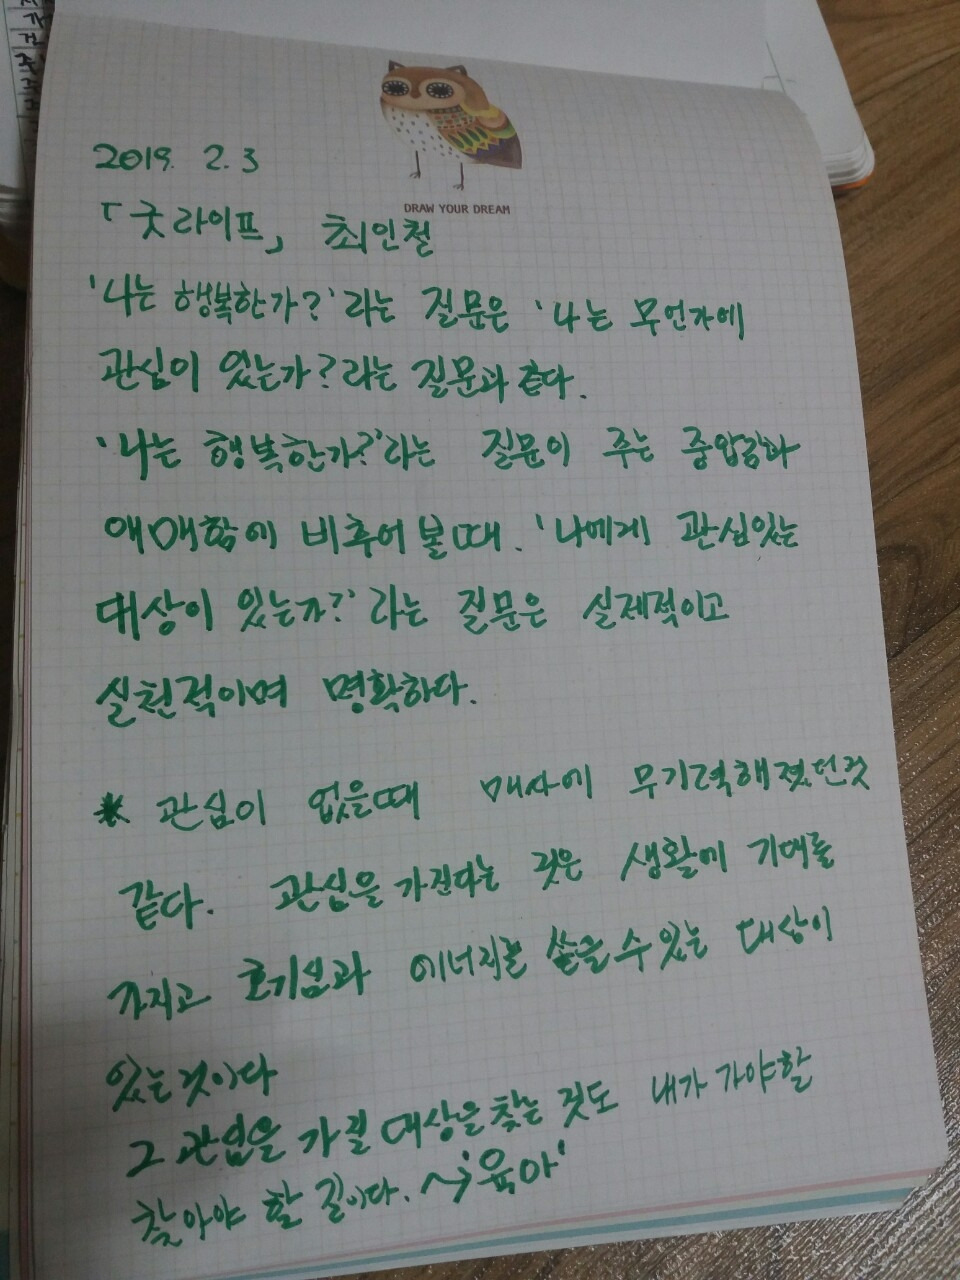 DRAW YOUR DREAM
2019. 2. 3
「굿라이프」 최인철
'나는 행복한가?'라는 질문은 '나는 무언가에
관심이 있는가?라는 질문과 같다.
'나는 행복한가?'라는 질문이 주는 중압감과
애매함에 비추어 볼때. '나에게 관심있는
대상이 있는가?'라는 질문은 실제적이고
실천적이며 명확하다.
* 관심이 없을때 매사에 무기력해졌던것
같다. 관심을 가진다는 것은 생활에 기대를
가지고 호기심과 에너지를 쏟을 수 있는 대상이
있는것이다
그 관심을 가질 대상을 찾는 것도 내가 가야할
찾아야 할 길이다. ~> '육아'